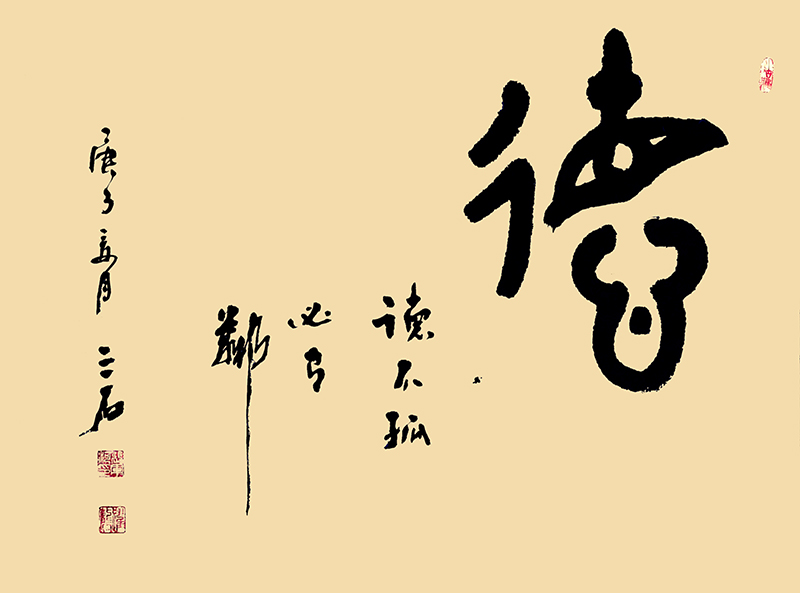 德
德不孤
必有
鄰
庚子夏月 二石